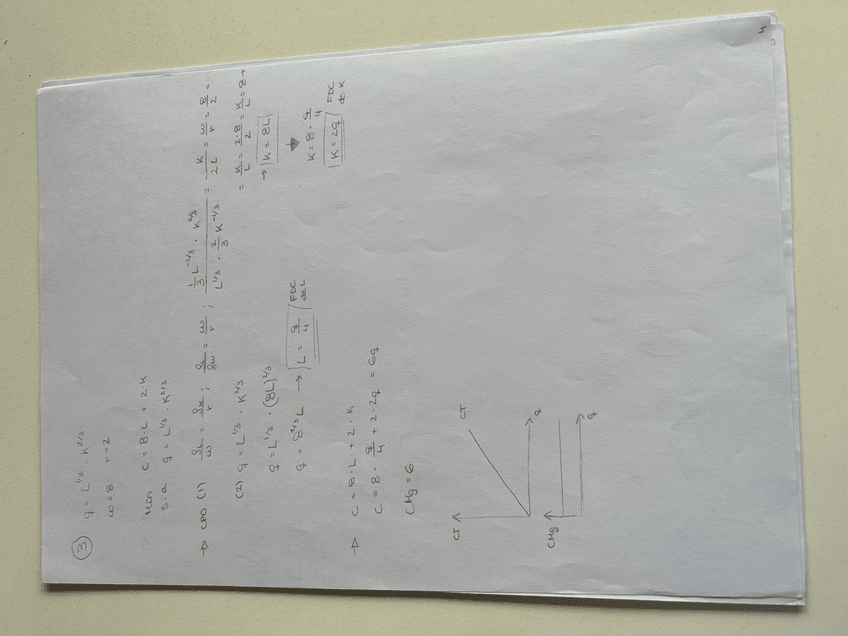 ③ q = L^1/3 · K^2/3
w = 8 r = 2
Min C = 8·L + 2·K
s.a q = L^1/3 · K^2/3
→ CPO (1) gL/w = gK/r ; gL/gw = w/r ; (1/3 L^-2/3 · K^2/3)/(L^1/3 · 2/3 K^-1/3) = K/2L = w/r = 8/2 =
= K/L = 2·8/2 = K/L = 8 →
→ K = 8L
(2) q = L^1/3 · K^2/3
q = L^1/3 · (8L)^2/3
q = 8^2/3 L → L = q/4 FDC de L
K = 8 · q/4
K = 2q FDC de K
→ C = 8·L + 2·K
C = 8 · q/4 + 2·2q = 6q
CMg = 6
CT
CT
q
CMg
q
4